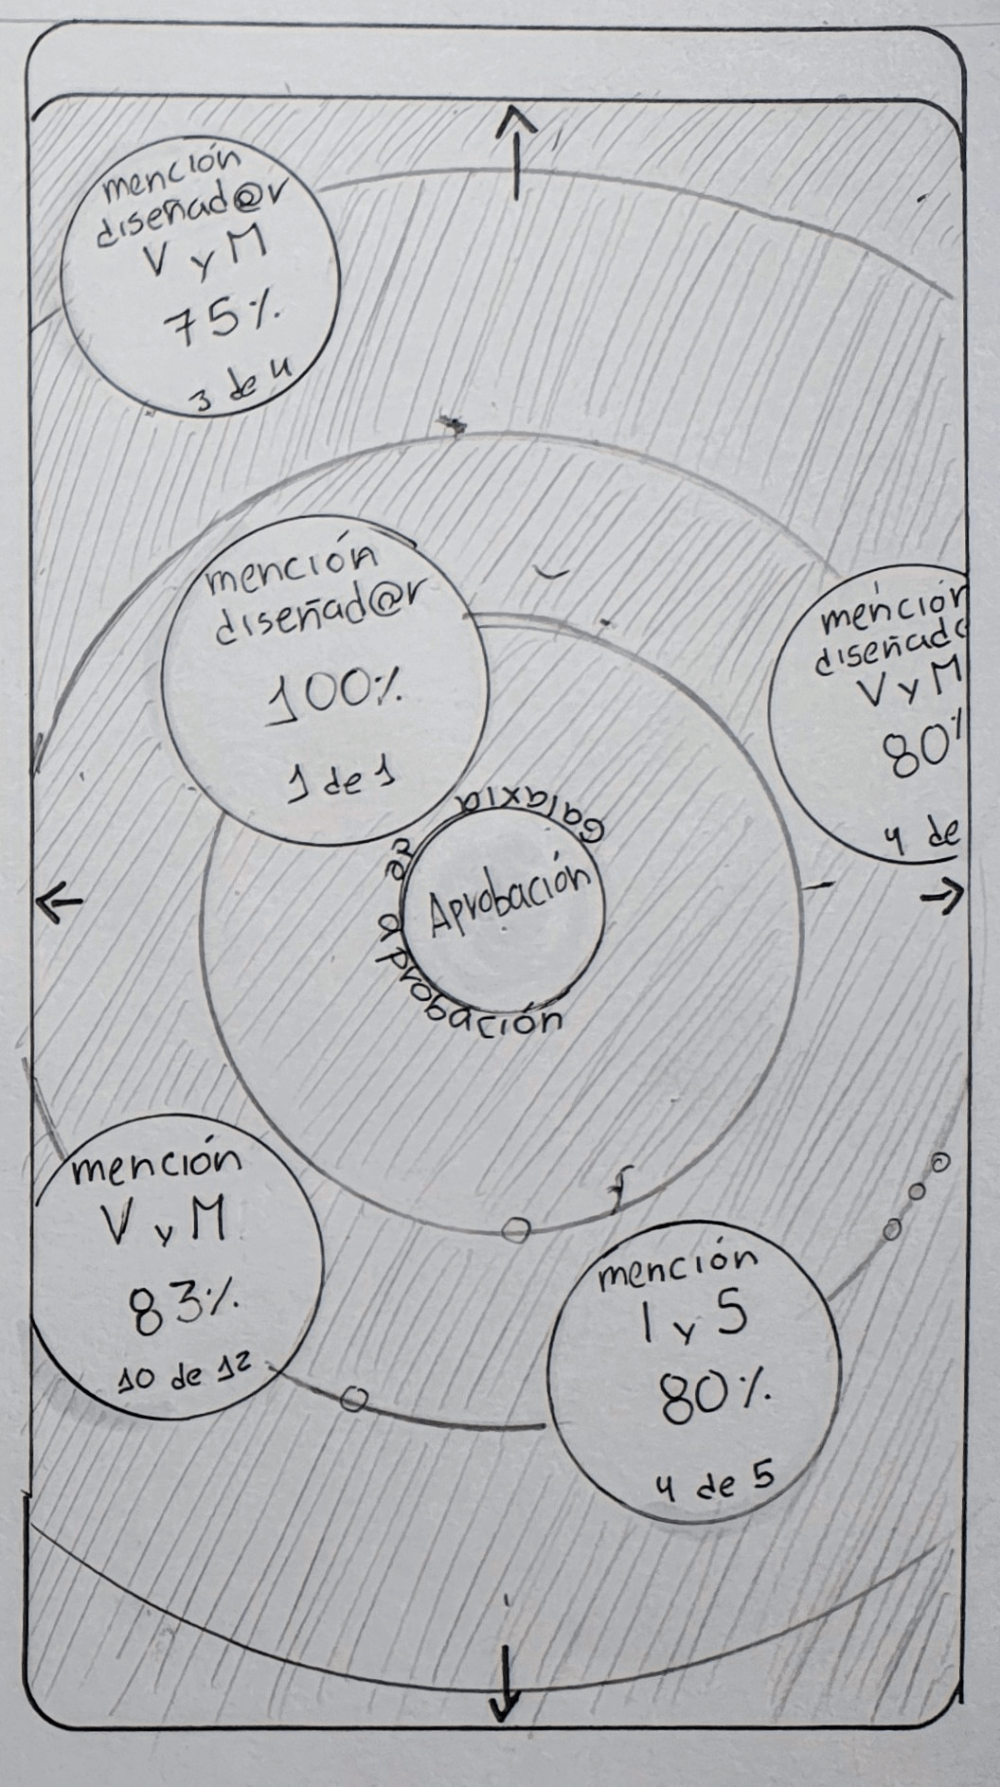 mención
diseñad@r
V y M
75%
3 de 4
mención
diseñad@r
100%
1 de 1
mención
diseñad
V y M
80%
4 de
Galaxia de aprobación
Aprobación
mención
V y M
83%
10 de 12
mención
I y S
80%
4 de 5